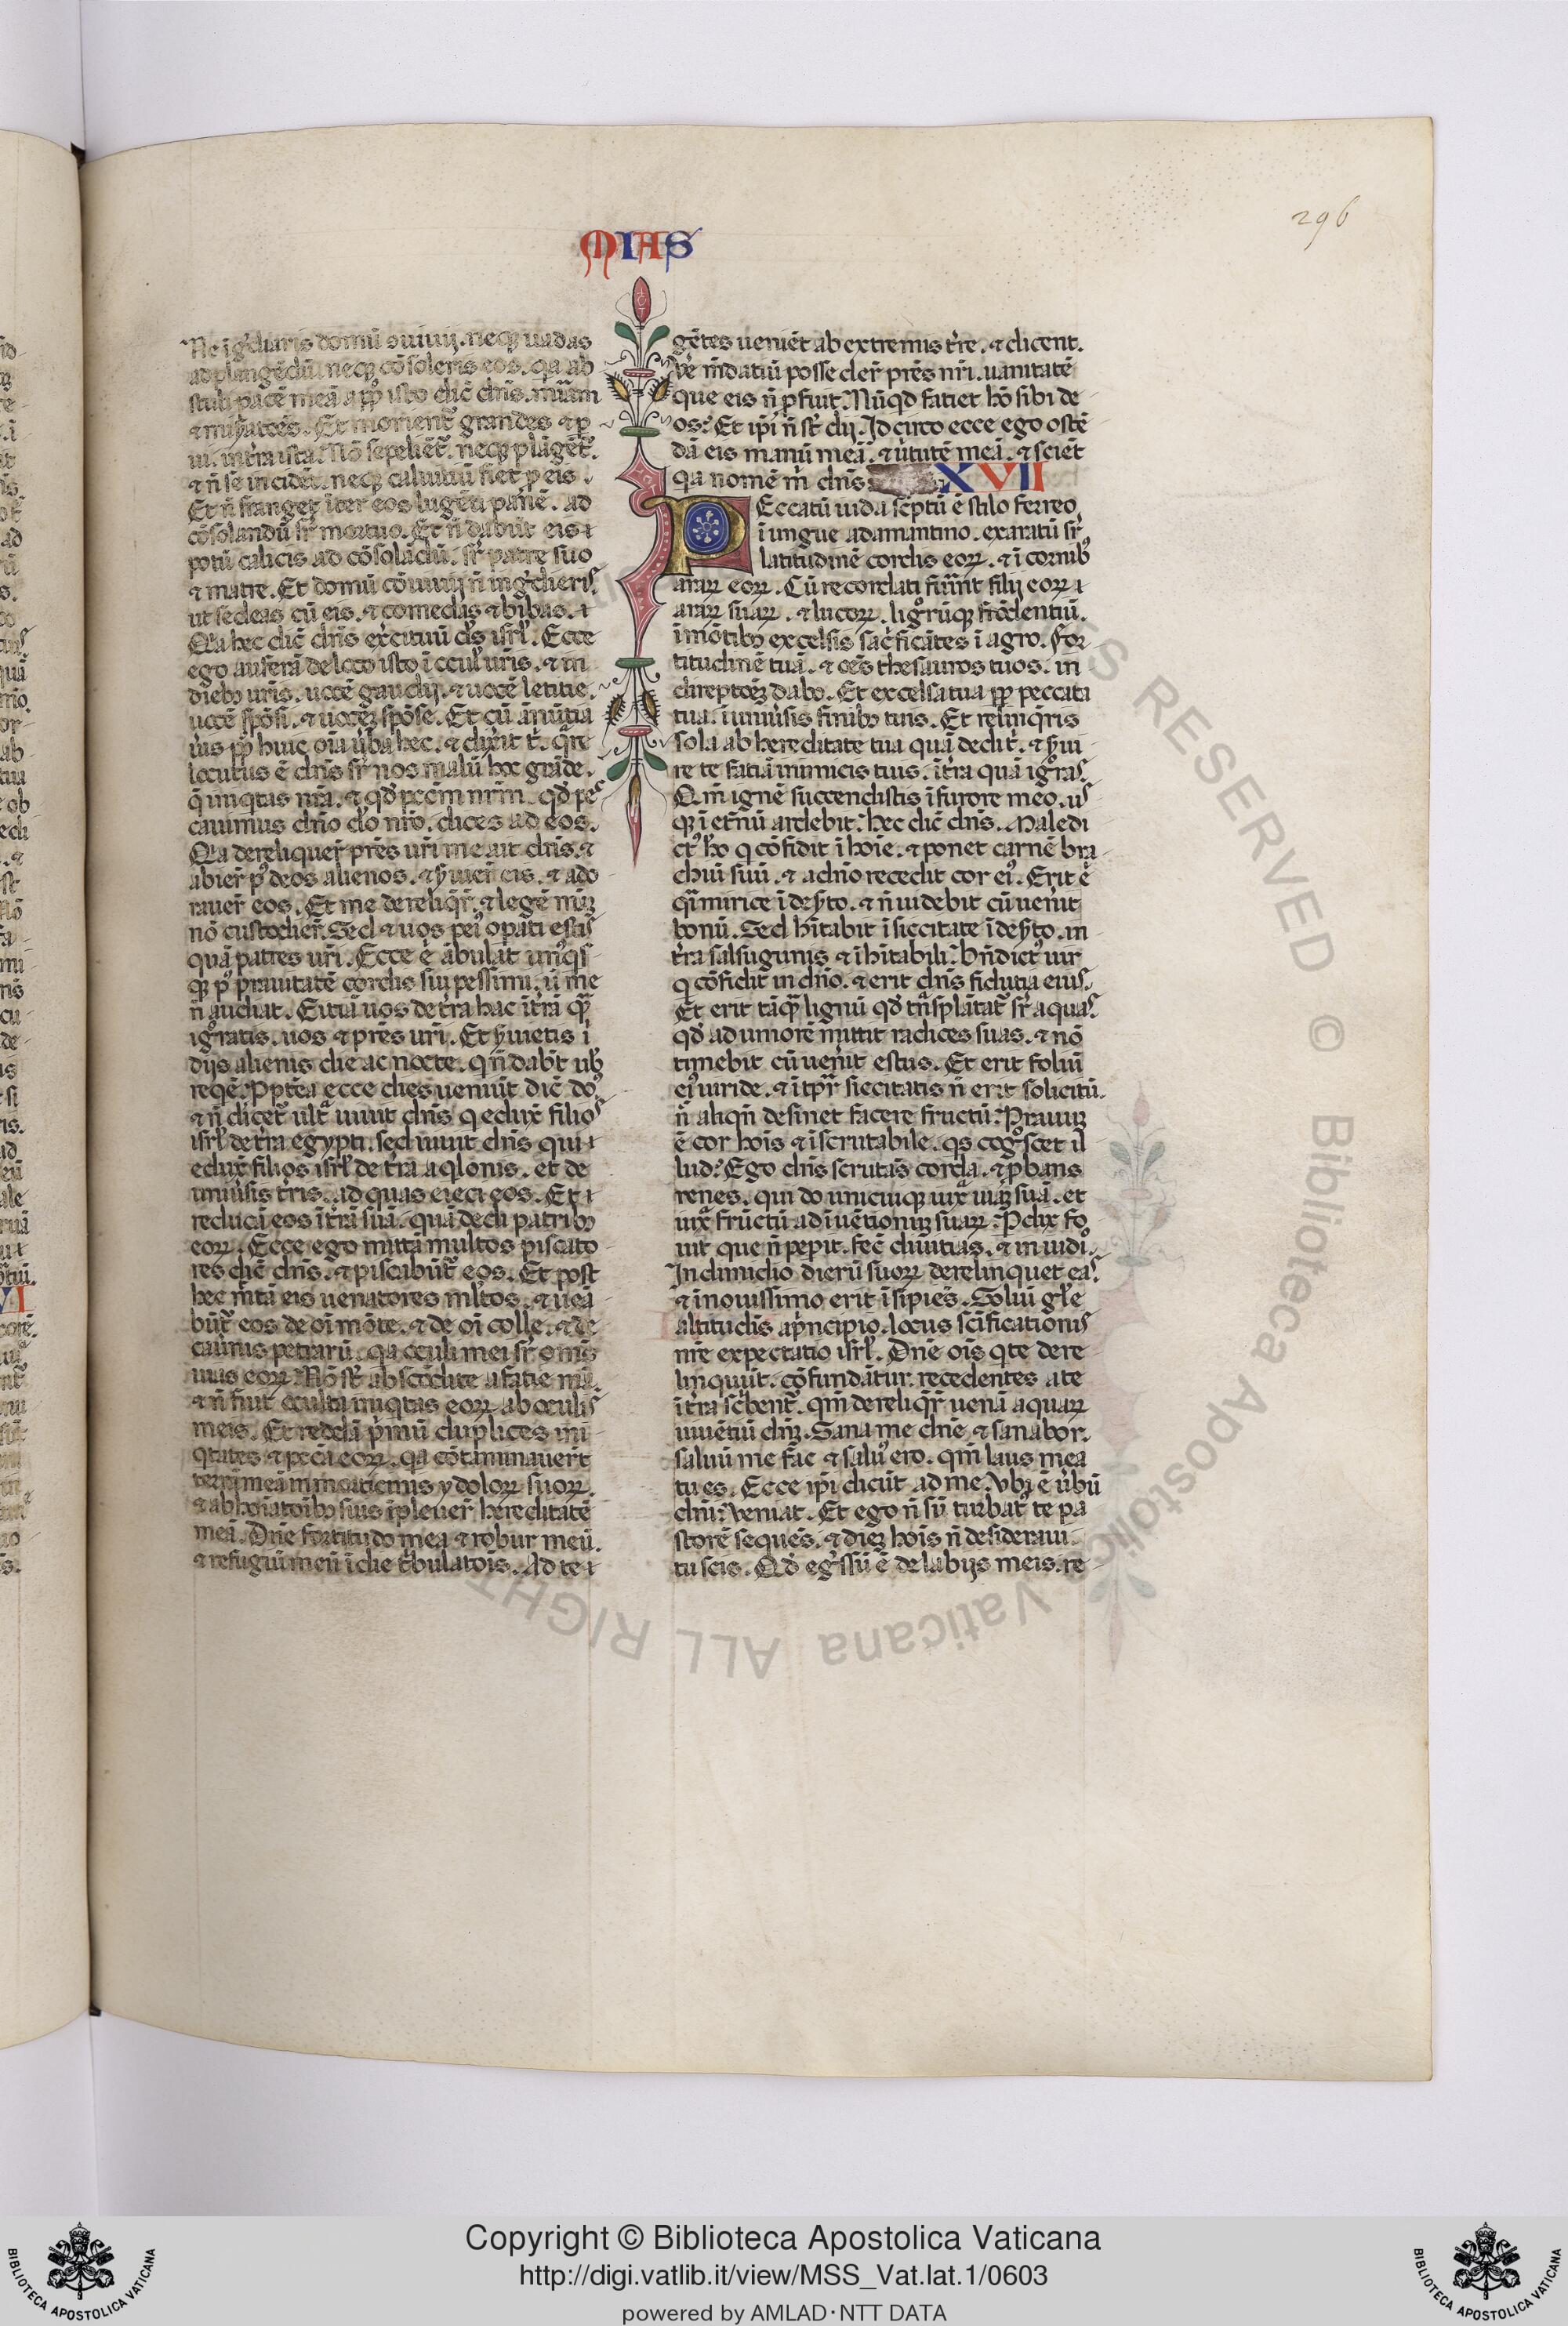 296
MIAS
Ne īg̃diaris domū ɔuiuij. neqꝫ uadas
ad plangēdū neqꝫ cōsoleris eos. qa ab
stuli pacē meā a pplo isto dic̄ dn̄s. mīam
⁊ mis̃atiōes. Et morient᷑ grandes ⁊ p̱
ui. in t̃ra ista. Nō sepeliēt᷑. neqꝫ plāgēt᷑.
⁊ ñ se incidēt. neqꝫ caluitiū fiet p̱ eis.
Et ñ franget̃ īter eos lugēti panē. ad
cōsolandū sr̃ mortuo. Et ñ dabūt eis
potū calicis ad cōsolādū. sr̃ patre suo
⁊ matre. Et domū cōuiuij ñ ing̃dieris.
ut sedeas cū eis. ⁊ comedas ⁊ bibas.
Qa hec dic̄ dn̄s exercituū ds̄ isrł. Ecce
ego auferā de loco isto ī ocul̃ ur̄is. ⁊ in
diebꝫ ur̄is. uocē gaudij. ⁊ uocē letitie.
uocē spōsi. ⁊ uocēꝫ spōse. Et cū ānūtia
ũis pplo huic oīa ũba hec. ⁊ dixĩt t᷑. q̃re
locutus ē dn̄s sr̃ nos malū hoc grāde.
q̃ iniqtas nr̄a. ⁊ qd̃ pccm̄ nrm̄. qd̃ pec
cauimus dn̄o do nr̄o. dices ad eos.
Qa dereliquer̃ pr̄es ur̄i me ait dn̄s. ⁊
abier̃ p᷒ deos alienos. ⁊ s̃uier̃ eis. ⁊ ado
rauer̃ eos. Et me dereliq̃r̃. ⁊ legē meāꝫ
nō custodier̃. Sed ⁊ uos pei᷒ opati estis
quā patres ur̄i. Ecce ē ābulat unꝰqs
qꝫ p᷒ prauitatē cordis sui pessimi. ũ me
ñ audiat. Eitiā uos de t̃ra hac ī t̃rā qm̃
ig̃ratis. uos ⁊ pr̄es ur̄i. Et s̃uietis ī
dijs alienis die ac nocte. q ñ dabt̄ uƀ
reqē. Pp̱tea ecce dies ueniūt dic̄ do᷒.
⁊ ñ dicet᷑ ult̃ uiuit dn̄s q eduxĩt filios
isrł de t̃ra egypti. sed uiuit dn̄s qui
eduxĩt filios isrł de t̃ra aqlonis. et de
uniũsis t̃ris. ad quas eieci eos. Et
reducā eos ī t̃rā suā. quā dedi patribꝫ
eoꝝ. Ecce ego mittā multos piscato
res dic̄ dn̄s. ⁊ piscabūt᷑ eos. Et post
hec mītā eis uenatores ml̃tos. ⁊ uea
būt᷑ eos de oī mōte. ⁊ de oī colle. ⁊ de
cauũnis petrarū. qa oculi mei sr̃ om̄s
uias eoꝝ. Nō st̃ abscōdite a facie mā.
⁊ ñ fiut occulta iniqtas eoꝝ ab oculis
meis. Et reddā p̃mū duplices ini
qtates ⁊ pccā eoꝝ. qa cōtaminauer̃t
terrā meā in morticinis ydoloꝝ suoꝝ.
⁊ abhoīatoibꝫ suis īpleuer̃ hereditatē
meā. Dn̄e fortitudo mea ⁊ robur meū.
⁊ refugiū meū ī die t̃bulatoīs. Ad te
gētes ueniēt ab extremis t̃re. ⁊ dicent.
Ve m̄datiū posse der̃ pr̄es nr̄i. uanitatē
que eis ñ p̱fuit. Nūqd faciet hō sibi de
os? Et ip̄i ñ st̃ dij. Idcirco ecce ego ostē
dā eis manū meā. ⁊ ũtutē meā. ⁊ sciēt
qa nomē m̃ dn̄s XVII
Peccatū iuda sc̃ptū ē stilo ferreo
ī ungue adamantino. exaratū sr̃
latitudinē cordis eoꝝ. ⁊ ī cornibꝰ
araꝝ eoꝝ. Cū recordati fũint filij eoꝝ
araꝝ suaꝝ. ⁊ lucoꝝ. lignꝝqꝫ frōdentiū.
ī mōtibꝫ excelsis sac̃ficātes ī agro. For
titudinē tuā. ⁊ oēs thesauros tuos. in
direptoēꝫ dabo. Et excelsa tua pp̱ peccata
tua. ī uniũsis finibꝫ tuis. Et relinq̃ris
sola ab hereditate tua quā dedit̃. ⁊ s̃ui
re te faciā inimicis tuis. ī t̃ra quā ig̃ras.
Qm̄ ignē succendistis ī furore meo. us
qꝫ ī et̃nū ardebit. hec dic̄ dn̄s. Maledi
ctꝰ hō q cōfidit ī hoīe. ⁊ ponet carnē bra
chiū suū. ⁊ a dn̄o recedit cor eiꝰ. Erit ē
qi mirice ī des̃to. ⁊ ñ uidebit cū uen̄it
bonū. Sed hītabit ī siccitate ī des̃to. in
t̃ra salsuginis ⁊ īhītabili. Bn̄dictꝰ uir
q cōfidit in dn̄o. ⁊ erit dn̄s fiducia eius.
Et erit tāqm̃ lignū qd̃ tñsplātat᷑ sr̃ aquas.
qd̃ ad umorē mittit radices suas. ⁊ nō
timebit cū uen̄it estus. Et erit foliū
eiꝰ uiride. ⁊ ī tpr̄ siccitatis ñ erit solicitū.
ñ aliqñ desinet facere fructū. Prauuꝫ
ē cor hoīs ⁊ īscrutabile. qs cog̃scet il
lud? Ego dn̄s scrutās corda. ⁊ p̱bans
renes. qui do unicuiqꝫ iuxͣ uiāꝫ suā. et
iuxͣ fructū adīuētionuꝫ suaꝝ. Pdix fo
uit que ñ pepit. fec̄ diuitias. ⁊ in iudi.
In dimidio dierū suoꝝ derelinquet eas.
⁊ ī nouissimo erit īsipiēs. Soliū gl̃e
altitudīs a p̃ncipio. locus sc̄ificationis
nr̄e expectatio isrł. Dn̄e oīs qte dere
linquūt. cōfundātur. recedentes a te
ī t̃ra sc̃bent᷑. qm̄ dereliq̃r̃ uenā aquaꝝ
uiuētiū dn̄ꝫ. Sana me dn̄e ⁊ sanabor.
saluū me fac ⁊ saluꝰ ero. qm̄ laus mea
tu es. Ecce ip̄i dicūt ad me. Vbi ē ũbū
dn̄i? Veniat. Et ego ñ sū turbatꝰ te pa
storē sequēs. ⁊ dieꝫ hoīs ñ desideraui
tu scis. Qd̃ eg̃ssū ē de labijs meis. re
Copyright © Biblioteca Apostolica Vaticana
http://digi.vatlib.it/view/MSS_Vat.lat.1/0603
powered by AMLAD·NTT DATA